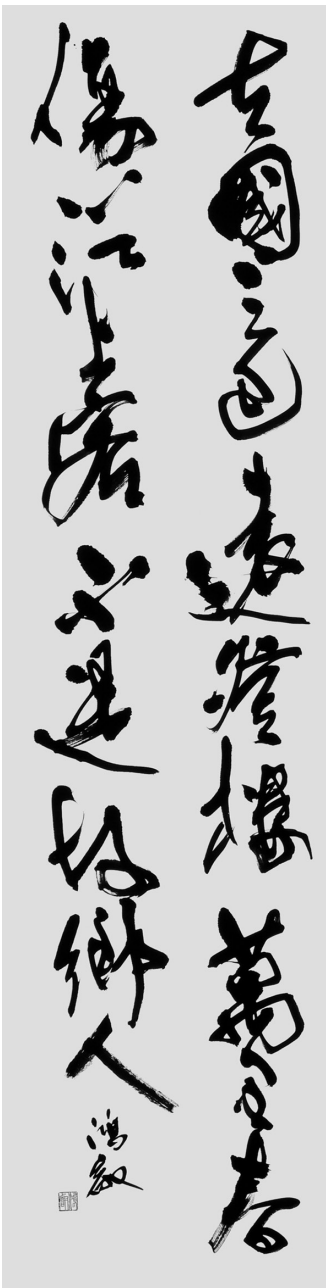 去國三巴遠登樓萬里春
傷心江上客不是故鄉人
鴻敏